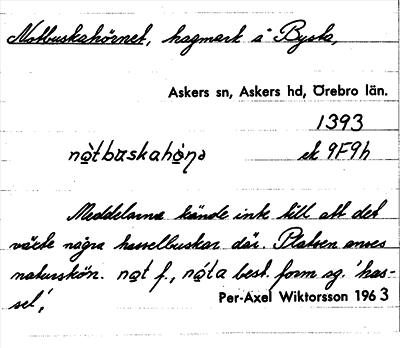 Notbuskahörnet, hagmark å Bysta,
Askers sn, Askers hd, Örebro län.
1393
nòtbuskahò̱ṇə ek 9F9h
Meddelarna kände inte till att det
växte några hasselbuskar där. Platsen anses
naturskön. nот f., nò̱ta best. form sg. 'has-
sel',
Per-Axel Wiktorsson 1963